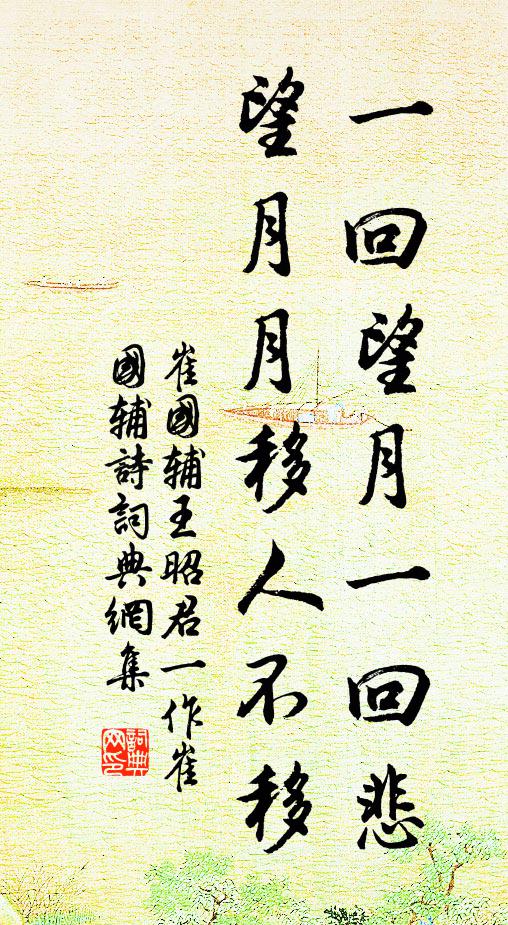 一回望月一回悲
望月月移人不移
崔國辅王昭君一作崔
國辅詩詞典網集
詞典网印